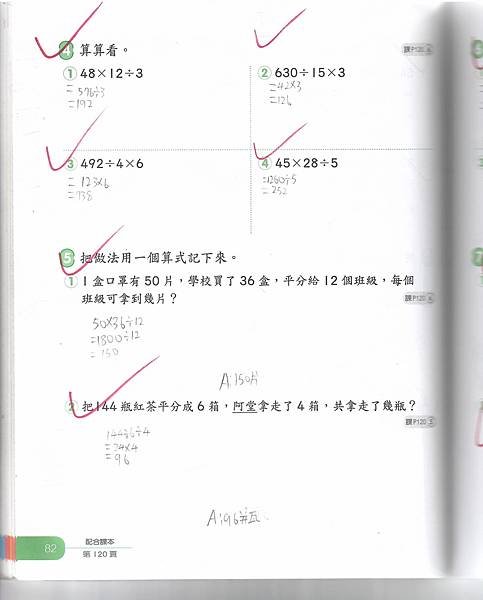 4 算算看。 課P120 ⑥
① 48×12÷3
= 576÷3
=192
② 630÷15×3
=42×3
=126
③ 492÷4×6
= 123×6
=738
④ 45×28÷5
=1260÷5
= 252
5 把做法用一個算式記下來。
① 1盒口罩有50片，學校買了36盒，平分給12個班級，每個
班級可拿到幾片？ 課P120 ⑥
50×36÷12
=1800÷12
=150
A:150片
② 把144瓶紅茶平分成6箱，阿堂拿走了4箱，共拿走了幾瓶？
課P120 ⑤
144÷6÷4
=24×4
=96
A:96瓶
82
配合課本
第120頁